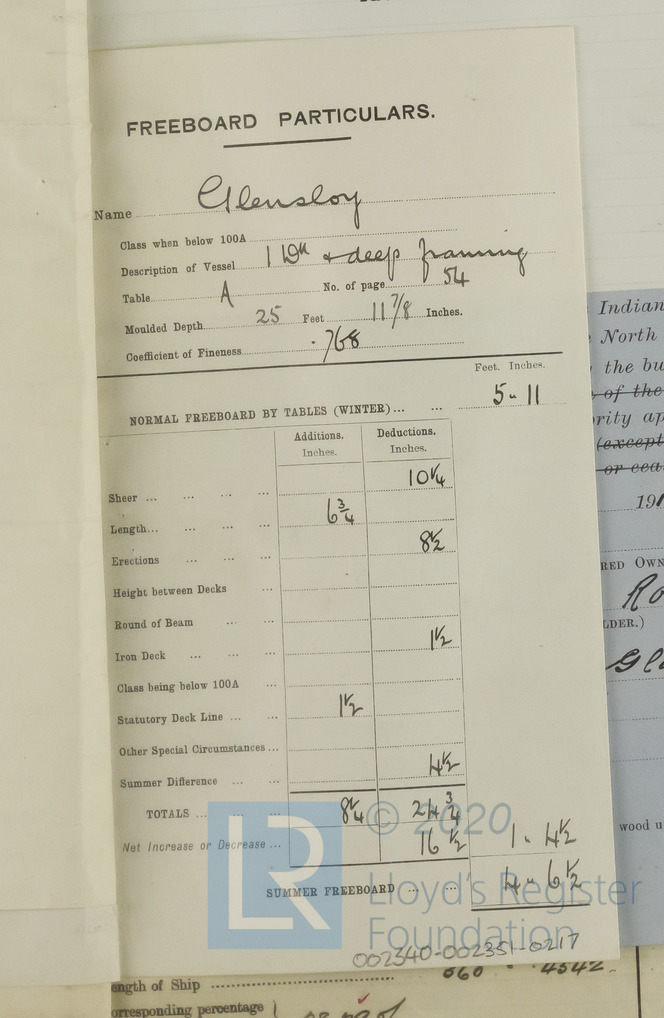 FREEBOARD PARTICULARS.
Name Glensloy
Class when below 100A
Description of Vessel 1 Dk & deep framing
Table A No. of page 54
Moulded Depth 25 Feet 11 7/8 Inches.
Coefficient of Fineness .768
Feet. Inches.
NORMAL FREEBOARD BY TABLES (WINTER)... ... 5 - 11
Additions. Deductions.
Inches. Inches.
Sheer ... ... ... ... 10 1/4
Length... ... ... ... 6 3/4
Erections ... ... ... 8 1/2
Height between Decks ...
Round of Beam ... ...
Iron Deck ... ... ... 1 1/2
Class being below 100A ...
Statutory Deck Line ... ... 1 1/2
Other Special Circumstances ...
Summer Difference ... ... 4 1/2
TOTALS ... ... ... 8 1/4 24 3/4
Net Increase or Decrease ... 16 1/2 1 - 4 1/2
SUMMER FREEBOARD ... ... 4 - 6 1/2
© 2020
LR Lloyd's Register
Foundation
002340-002351-0217
Indian
North
the bu
of the
rity ap
(except
or cea
191
RED OWN
Ro
LDER.)
Gl
wood u
ength of Ship
orresponding percentage